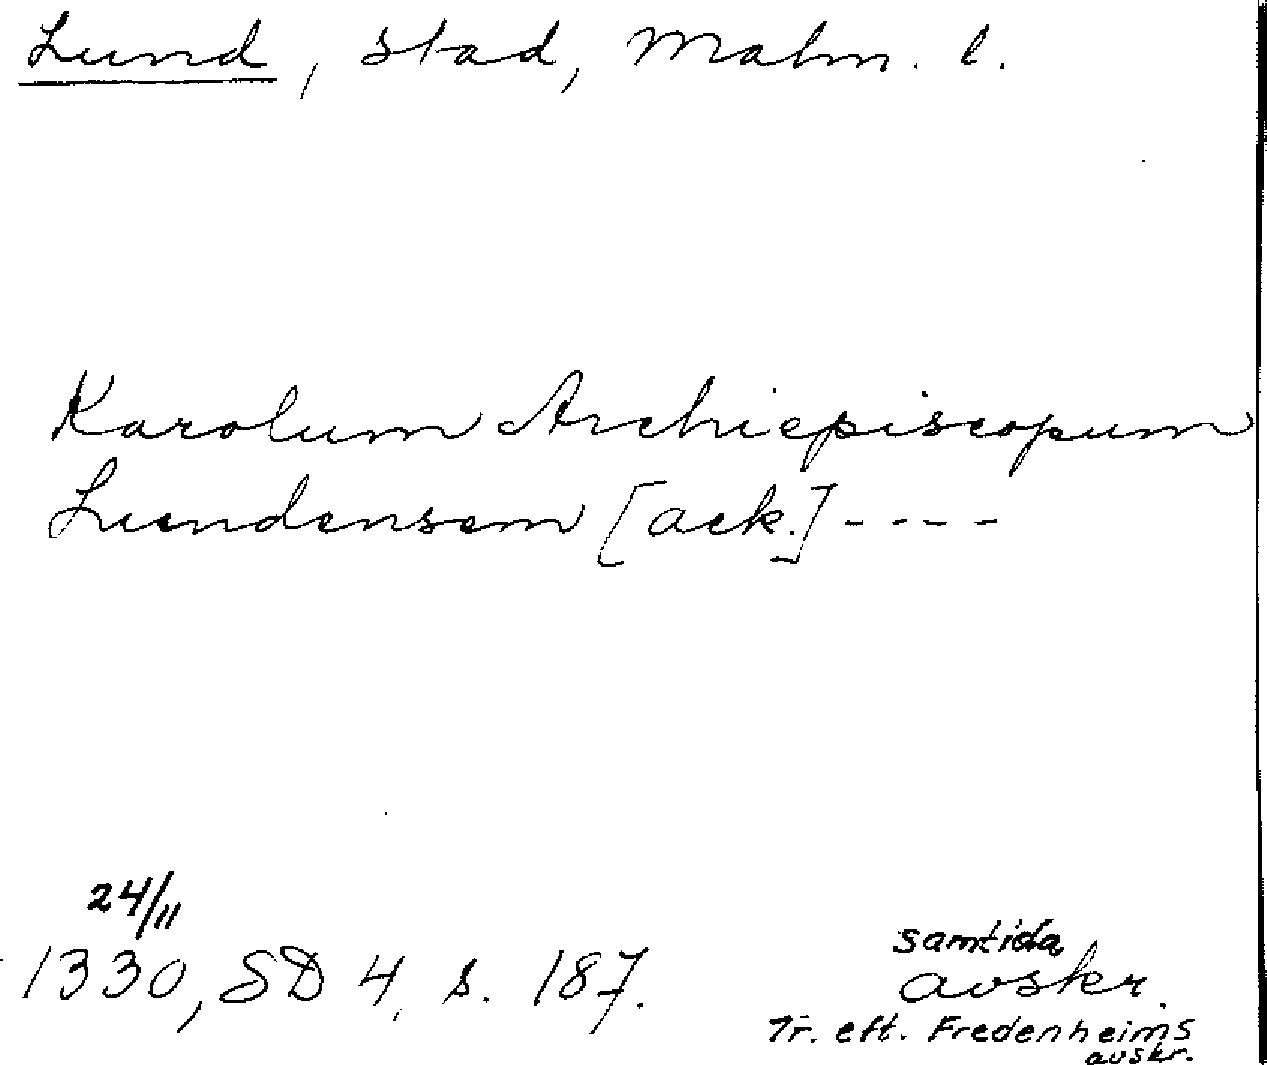 Lund, stad, Malm. l.
Karolum Archiepiscopum
Lundensem [ack.] - - - -
24/11
1330, SD 4, s. 187.
samtida
avskr.
Tr. eft. Fredenheims
avskr.